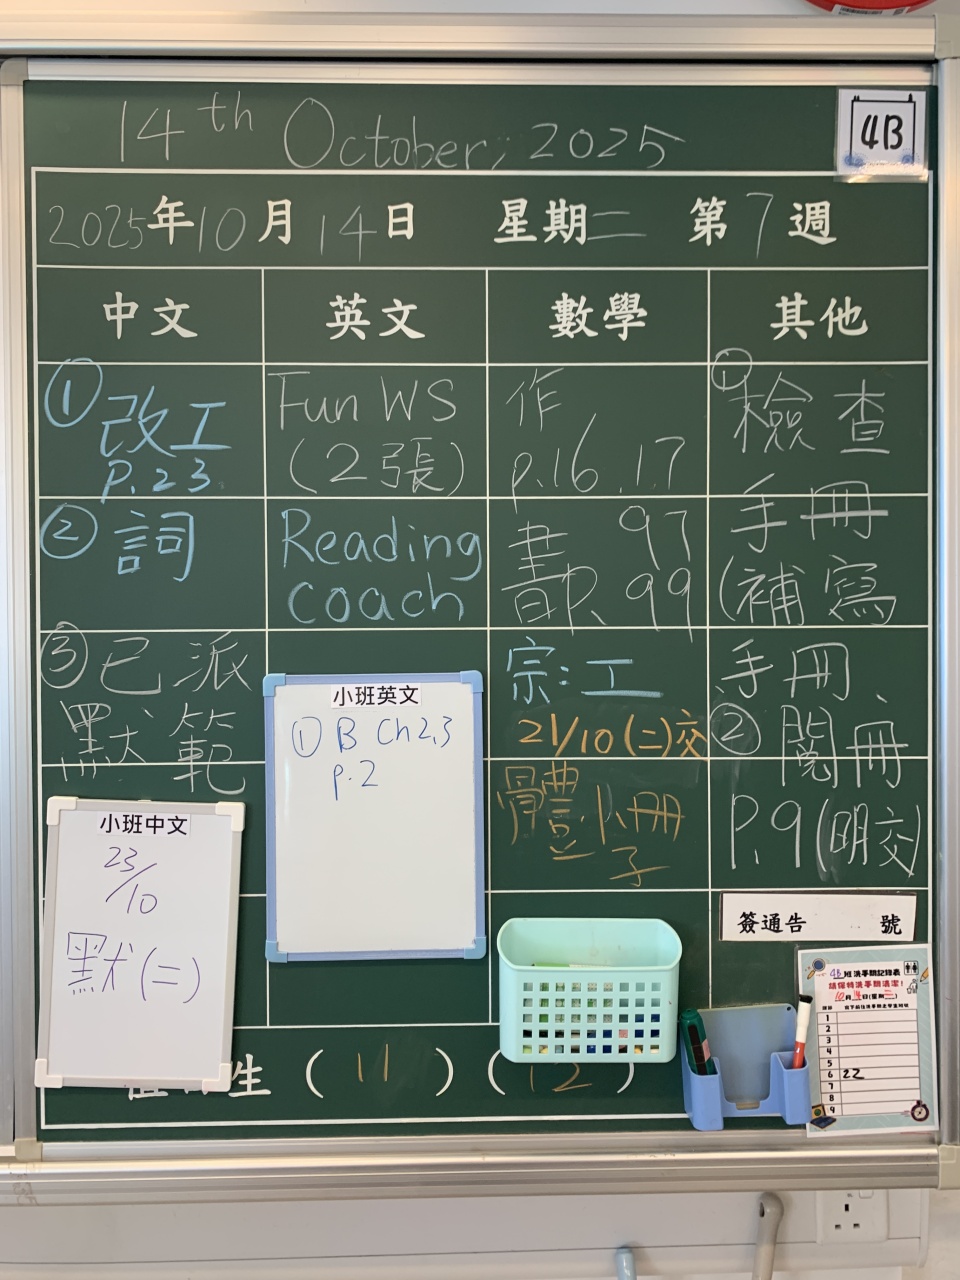 14th October, 2025
4B
2025年10月14日 星期二 第7週
中文 英文 數學 其他
① 改工
p.23
② 詞
③ 已派
默範
Fun WS
(2張)
Reading
coach
作
p.16、17
書 97
P. 99
宗：工
21/10 (二)交
體小冊
子
① 檢查
手冊
(補寫
手冊、
② 閱冊
P.9 (明交)
小班中文
23/10
默(二)
小班英文
① B Ch 2,3
p.2
簽通告 號
生 ( 11 ) ( 12 )
4B班洗手間記錄表
請保持洗手間清潔!
10月14日(星期二)
1
2
3
4
5
6 22
7
8
9